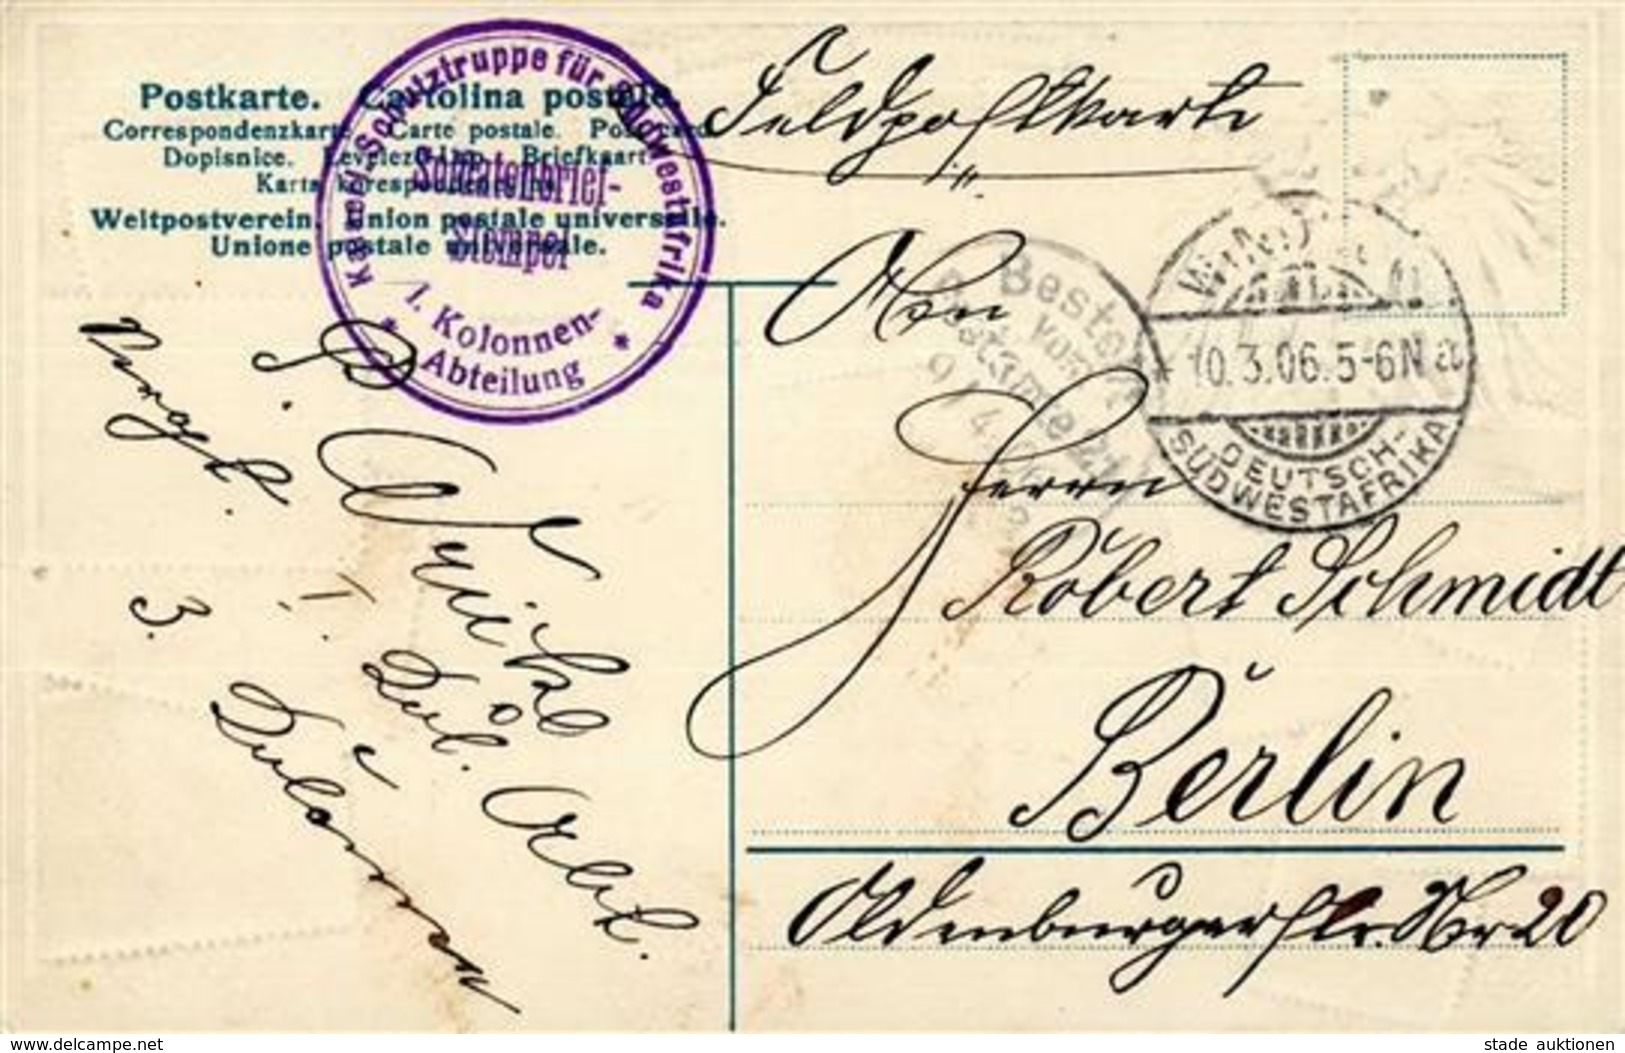 Postkarte. Cartolina postale.
Correspondenzkarte. Carte postale. Post card
Dopisnice. Levelező-Lap. Briefkaart.
Karta korespondencyjna.
Weltpostverein. Union postale universelle.
Unione postale universale.
Kaiserl. Schutztruppe für Südwestafrika
Soldatenbrief-
Stempel
1. Kolonnen-
Abteilung
Feldpostkarte
An
Herrn
Robert Schmidt
Berlin
Oldenburgerstr. Nr 20
Bestellt
vom
Postamte 21
9/4
WINDHUK
10.3.06.5-6N a
DEUTSCH-
SÜDWESTAFRIKA
S. B.
I. Kol. Abt.
3. Kolonne
www.delcampe.net
stade auktionen